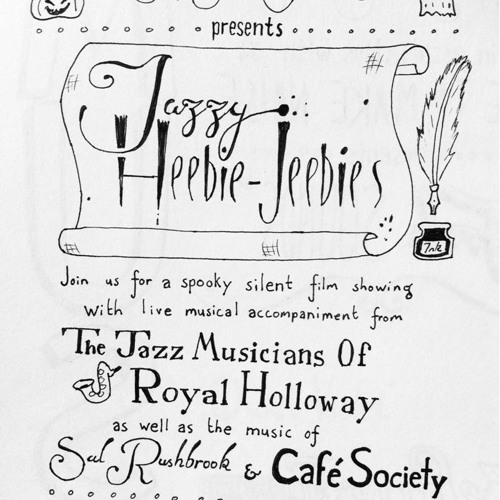 presents
Jazzy
Heebie-Jeebies
Ink
Join us for a spooky silent film showing
with live musical accompaniment from
The Jazz Musicians Of
Royal Holloway
as well as the music of
Sal Rushbrook & Café Society